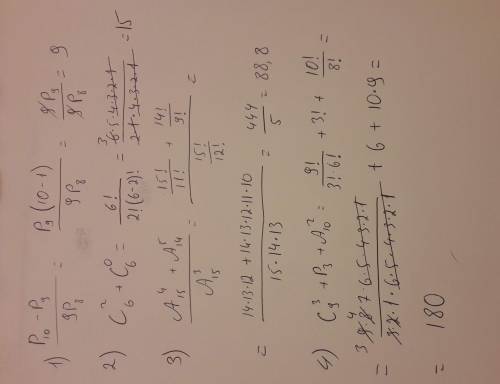 1) (P₁₀ - P₉)/(9P₈) = P₉(10-1)/(9P₈) = 9P₉/9P₈ = 9
2) C₆² + C₆⁰ = 6!/(2!(6-2)!) = 6·5·4·3·2·1/2·1·4·3·2·1 = 15
3) (A₁₅⁴ + A₁₄⁵)/A₁₅³ = (15!/11! + 14!/9!)/(15!/12!) =
= (14·13·12 + 14·13·12·11·10)/(15·14·13) = 444/5 = 88,8
4) C₉³ + P₃ + A₁₀² = 9!/(3!·6!) + 3! + 10!/8! =
= 9·8·7·6·5·4·3·2·1/3·2·1·6·5·4·3·2·1 + 6 + 10·9 =
= 180